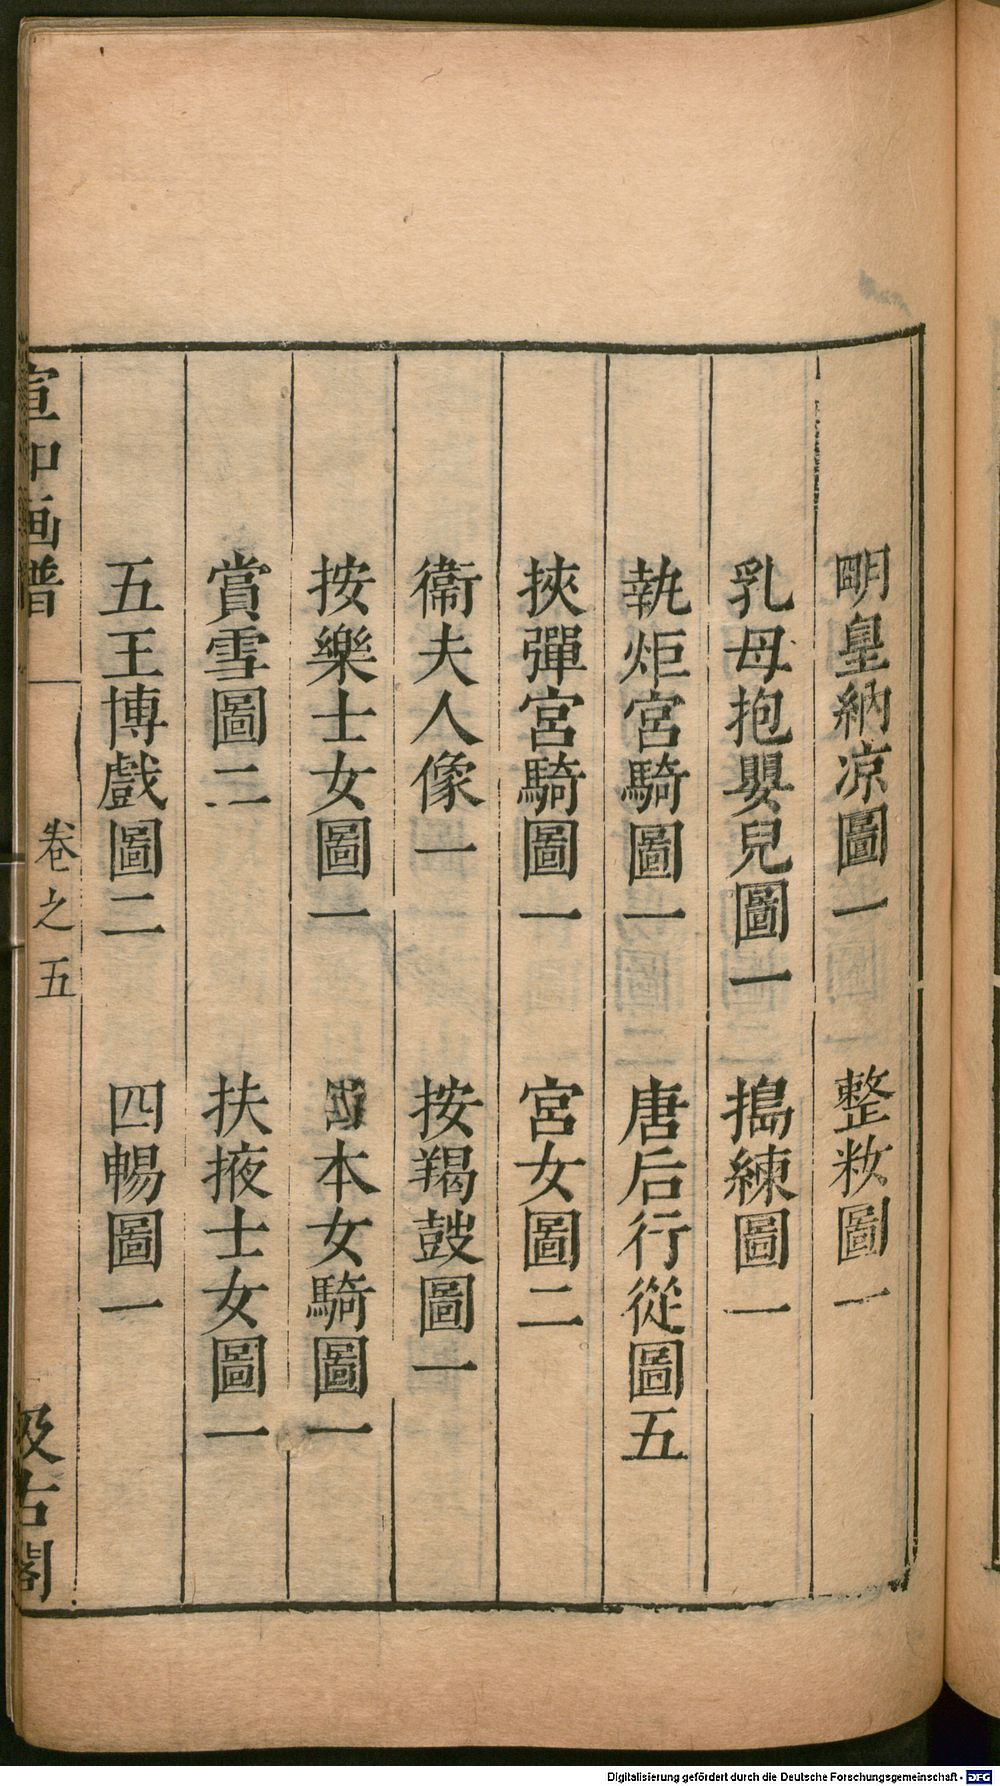 明皇納涼圖一 整粧圖一
乳母抱嬰兒圖一 搗練圖一
執炬宮騎圖一 唐后行從圖五
挾彈宮騎圖一 宮女圖二
衞夫人像一 按羯鼓圖一
按樂士女圖一 日本女騎圖一
賞雪圖二 扶掖士女圖一
五王博戲圖二 四暢圖一
宣和画譜 卷之五 汲古閣
Digitalisierung gefördert durch die Deutsche Forschungsgemeinschaft - DFG